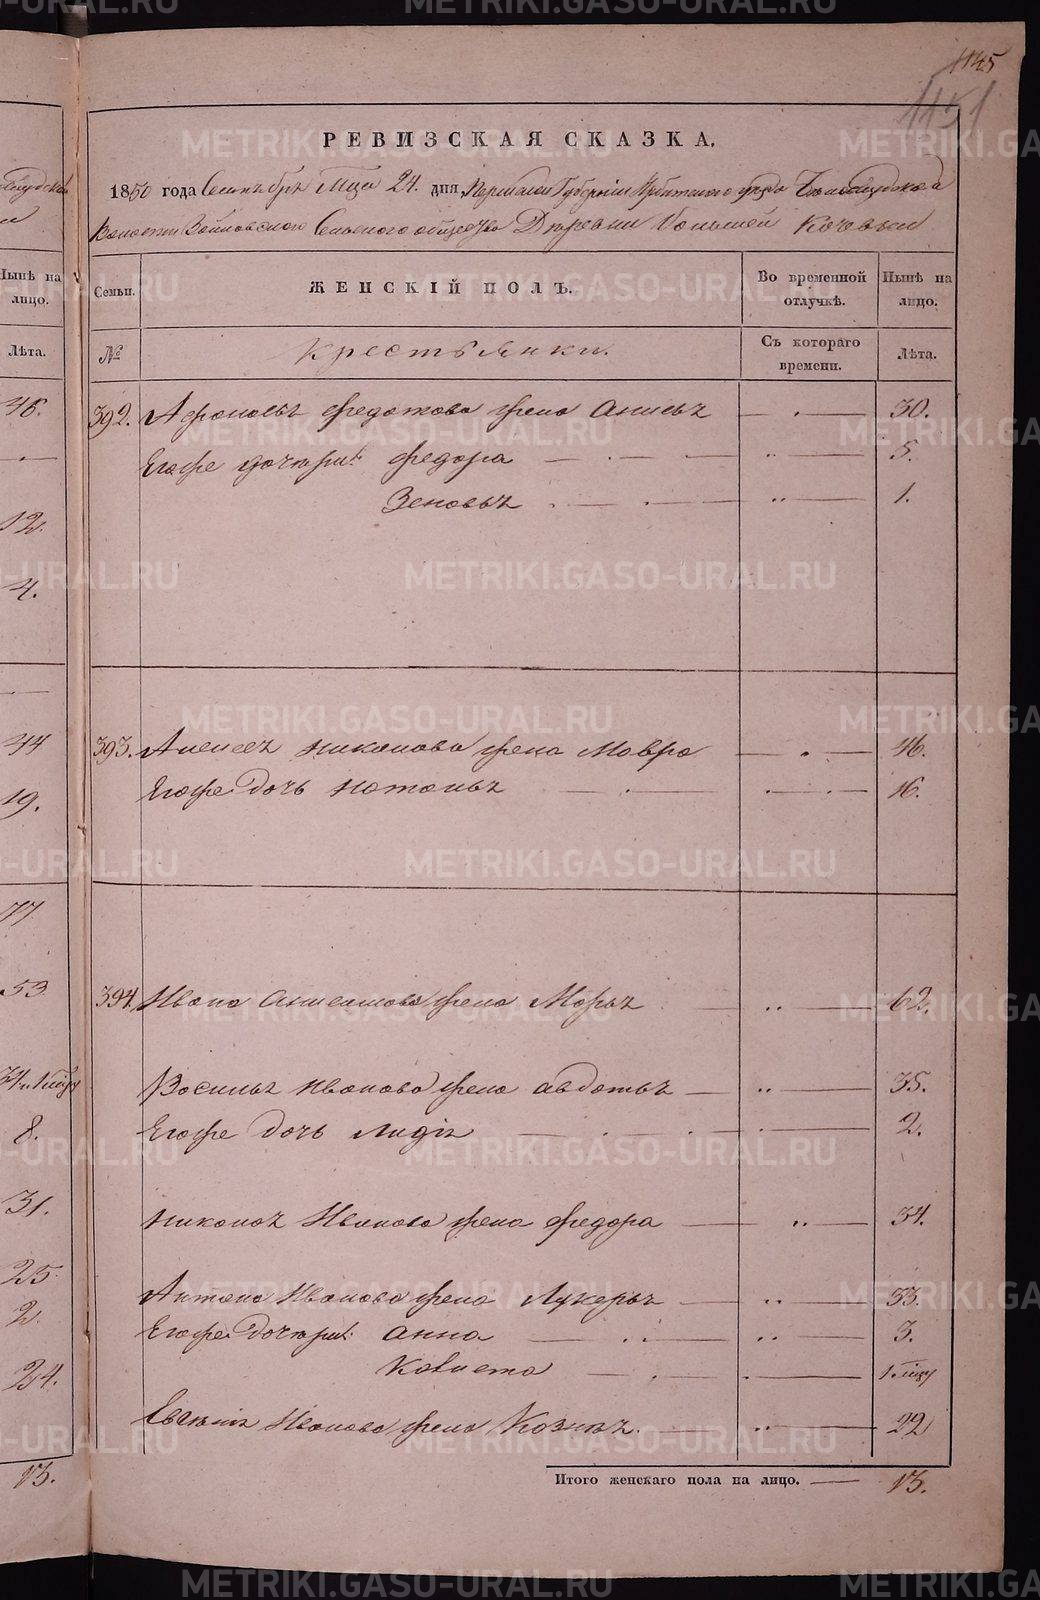 1145
1151
РЕВИЗСКАЯ СКАЗКА.
1850 года Сентября Мца 24. дня, Пермской Губернии Ирбитского уезда Белослудской
Волости Зайковского Сельского общества Деревни Большей Кочевки
Семьи. ЖЕНСКІЙ ПОЛЪ. Во временной отлучкѣ. Нынѣ на лицо.
№ Крестьянки. Съ котораго времени. Лѣта.
392. Афонасья Федотова жена Анисья 30.
Егоже дочери: Федора 5.
Зеновья 1.
393. Алексея Никонова жена Мавра 46.
Егоже дочь Наталья 16.
394. Ивана жена Марья 62.
Василья Иванова жена Авдотья 35.
Егоже дочь Лидия 2.
Николая Иванова жена Федора 34.
Антона Иванова жена Лукерья 33.
Егоже дочери: Анна 3.
1 міцу
Евгения Иванова жена 22
Итого женскаго пола на лицо. 13.
Нынѣ на лицо.
Лѣта.
46.
12.
4.
44
19.
77
53
8.
31.
25.
2.
24.
13.
METRIKI.GASO-URAL.RU